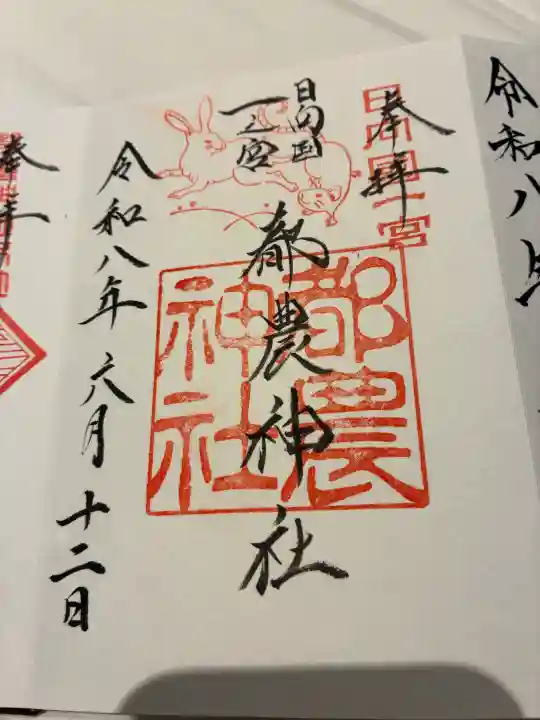 令和八年
奉拝
日向国一宮
日向国
一之宮
都農神社
都農
神社
令和八年六月十二日
奉拝